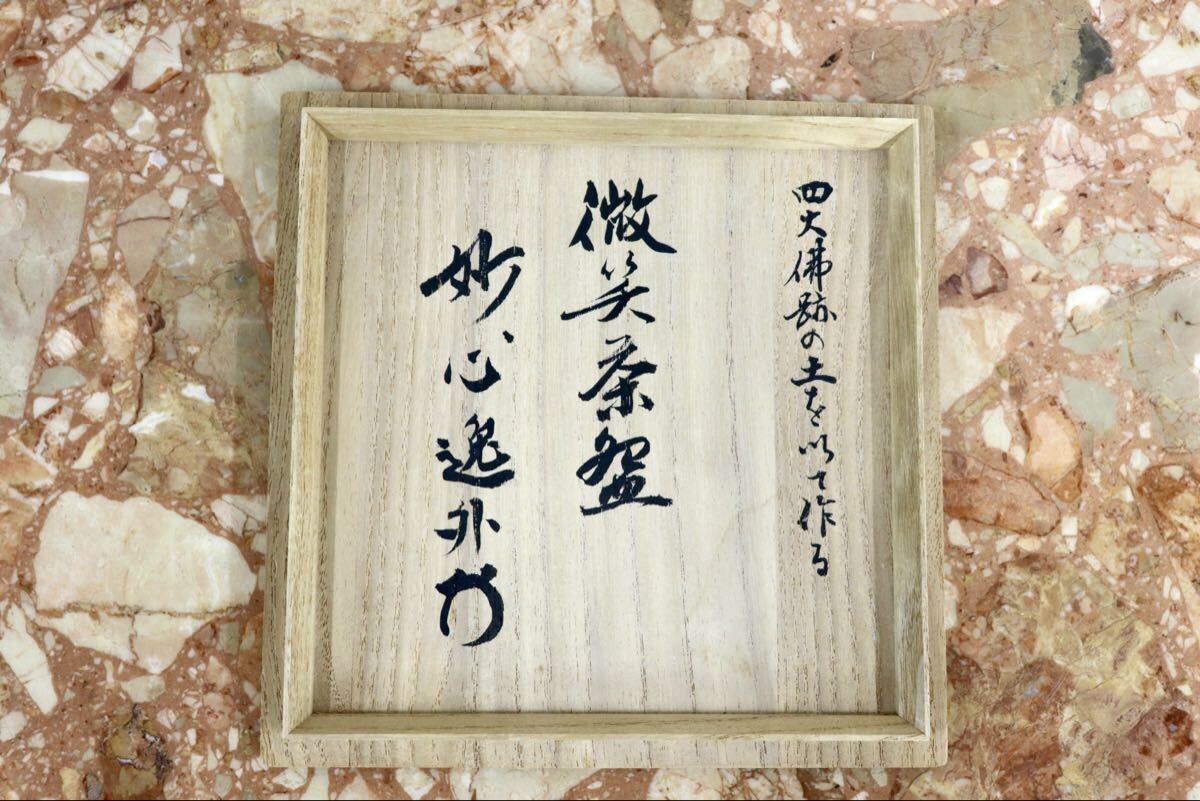 四大佛跡の土を以て作る
微笑茶盌
妙心逸外